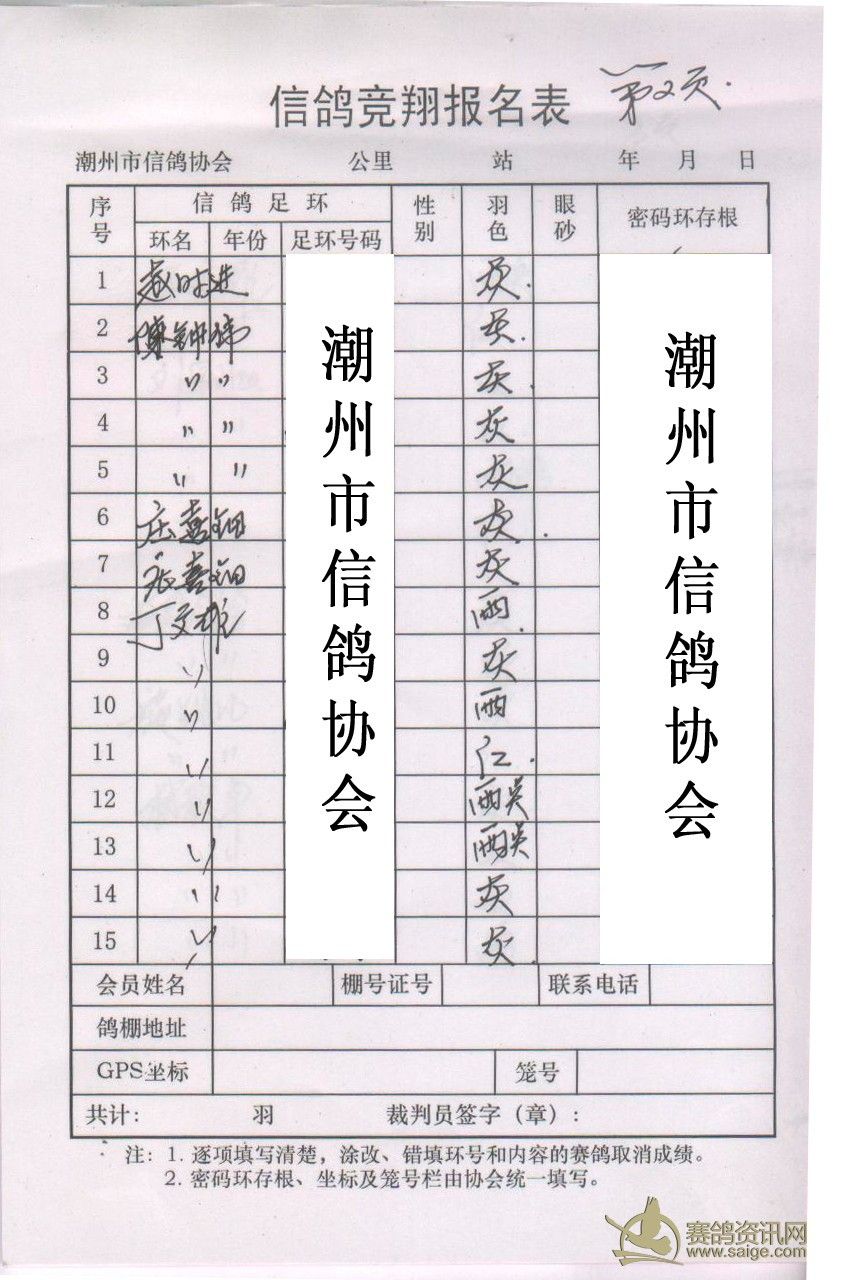 信鸽竞翔报名表 第2页.
潮州市信鸽协会 公里 站 年 月 日
序号 信鸽足环 性别 羽色 眼砂 密码环存根
环名 年份 足环号码
1 灰.
2 陳钟伟 灰.
3 〃 〃 灰.
4 〃 〃 灰
5 〃 〃 灰
6 庄喜钿 灰.
7 灰
8 丁文雄 雨.
9 〃 灰
10 〃 雨
11 〃 红.
12 〃 雨
13 〃 雨
14 〃 灰
15 〃 灰.
潮州市信鸽协会
潮州市信鸽协会
会员姓名 棚号证号 联系电话
鸽棚地址
GPS坐标 笼号
共计: 羽 裁判员签字(章):
注: 1. 逐项填写清楚,涂改、错填环号和内容的赛鸽取消成绩。
2. 密码环存根、坐标及笼号栏由协会统一填写。
赛鸽资讯网
www.saige.com